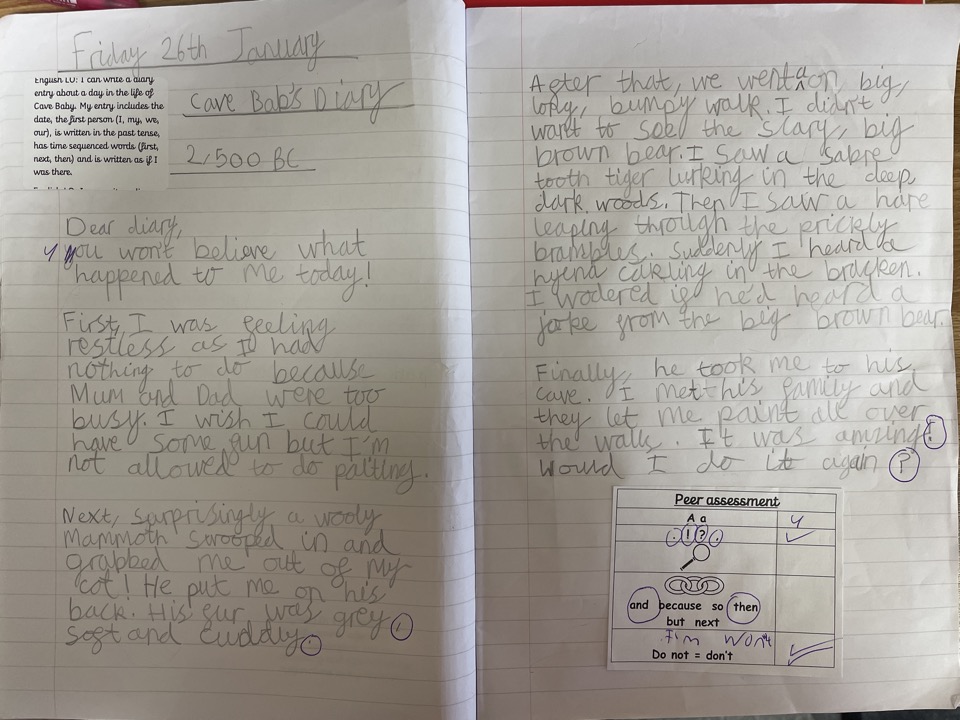 Friday 26th January
English LO: I can write a diary
entry about a day in the life of
Cave Baby. My entry includes the
date, the first person (I, my, we,
our), is written in the past tense,
has time sequenced words (first,
next, then) and is written as if I
was there.
Cave Bab's Diary
2,500 BC
Dear diary,
y you won't believe what
happened to me today!
First, I was feeling
restless as I had
nothing to do because
Mum and Dad were too
busy. I wish I could
have some fun but I'm
not allowed to do paiting.
Next, surprisingly a wooly
Mammoth swooped in and
grabbed me out of my
cot! He put me on his
back. His fur was grey,
soft and cuddly.
After that, we went a on big,
long, bumpy walk. I didn't
want to see the scary, big
brown bear. I saw a sabre
tooth tiger lurking in the deep,
dark woods. Then I saw a hare
leaping through the prickly
brambles. Suddenly I heard a
hyena cakling in the bracken.
I wodered if he'd heard a
joke from the big brown bear.
Finally, he took me to his
cave. I met his family and
they let me paint all over
the walls. It was amzing!
Would I do it again?
Peer assessment
A a y
. ! ? ,
and because so then
but next
I'm won't
Do not = don't